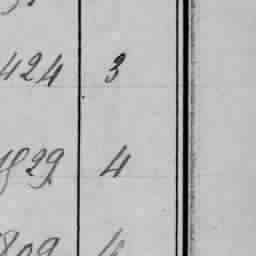 424 3
1829 4
809 4